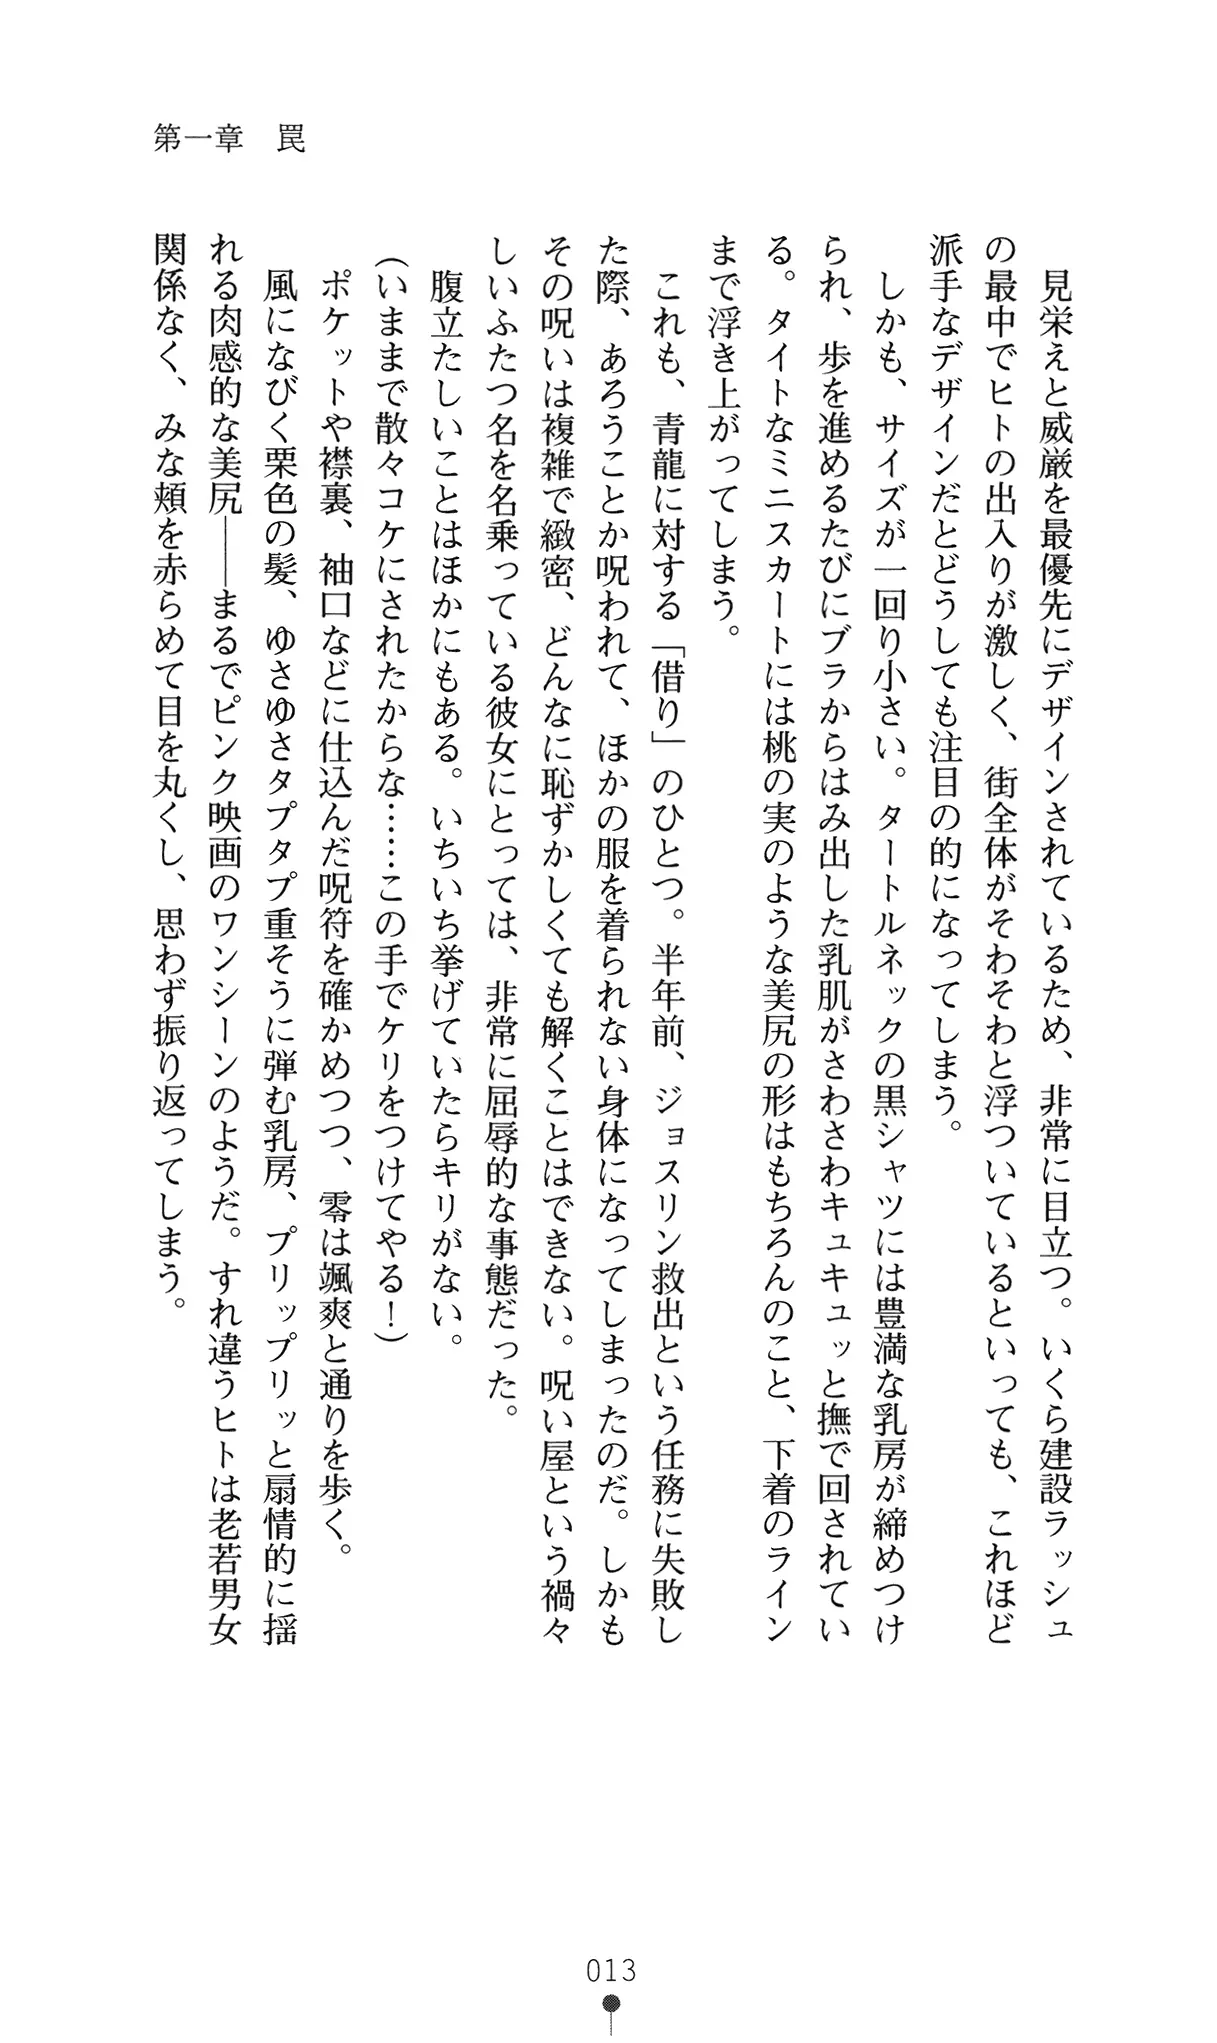 第一章　罠
見栄えと威厳を最優先にデザインされているため、非常に目立つ。いくら建設ラッシュ
の最中でヒトの出入りが激しく、街全体がそわそわと浮ついているといっても、これほど
派手なデザインだとどうしても注目の的になってしまう。
しかも、サイズが一回り小さい。タートルネックの黒シャツには豊満な乳房が締めつけ
られ、歩を進めるたびにブラからはみ出した乳肌がさわさわキュキュッと撫で回されてい
る。タイトなミニスカートには桃の実のような美尻の形はもちろんのこと、下着のライン
まで浮き上がってしまう。
これも、青龍に対する「借り」のひとつ。半年前、ジョスリン救出という任務に失敗し
た際、あろうことか呪われて、ほかの服を着られない身体になってしまったのだ。しかも
その呪いは複雑で緻密、どんなに恥ずかしくても解くことはできない。呪い屋という禍々
しいふたつ名を名乗っている彼女にとっては、非常に屈辱的な事態だった。
腹立たしいことはほかにもある。いちいち挙げていたらキリがない。
（いままで散々コケにされたからな……この手でケリをつけてやる！）
ポケットや襟裏、袖口などに仕込んだ呪符を確かめつつ、零は颯爽と通りを歩く。
風になびく栗色の髪、ゆさゆさタプタプ重そうに弾む乳房、プリップリッと扇情的に揺
れる肉感的な美尻――まるでピンク映画のワンシーンのようだ。すれ違うヒトは老若男女
関係なく、みな頬を赤らめて目を丸くし、思わず振り返ってしまう。
013